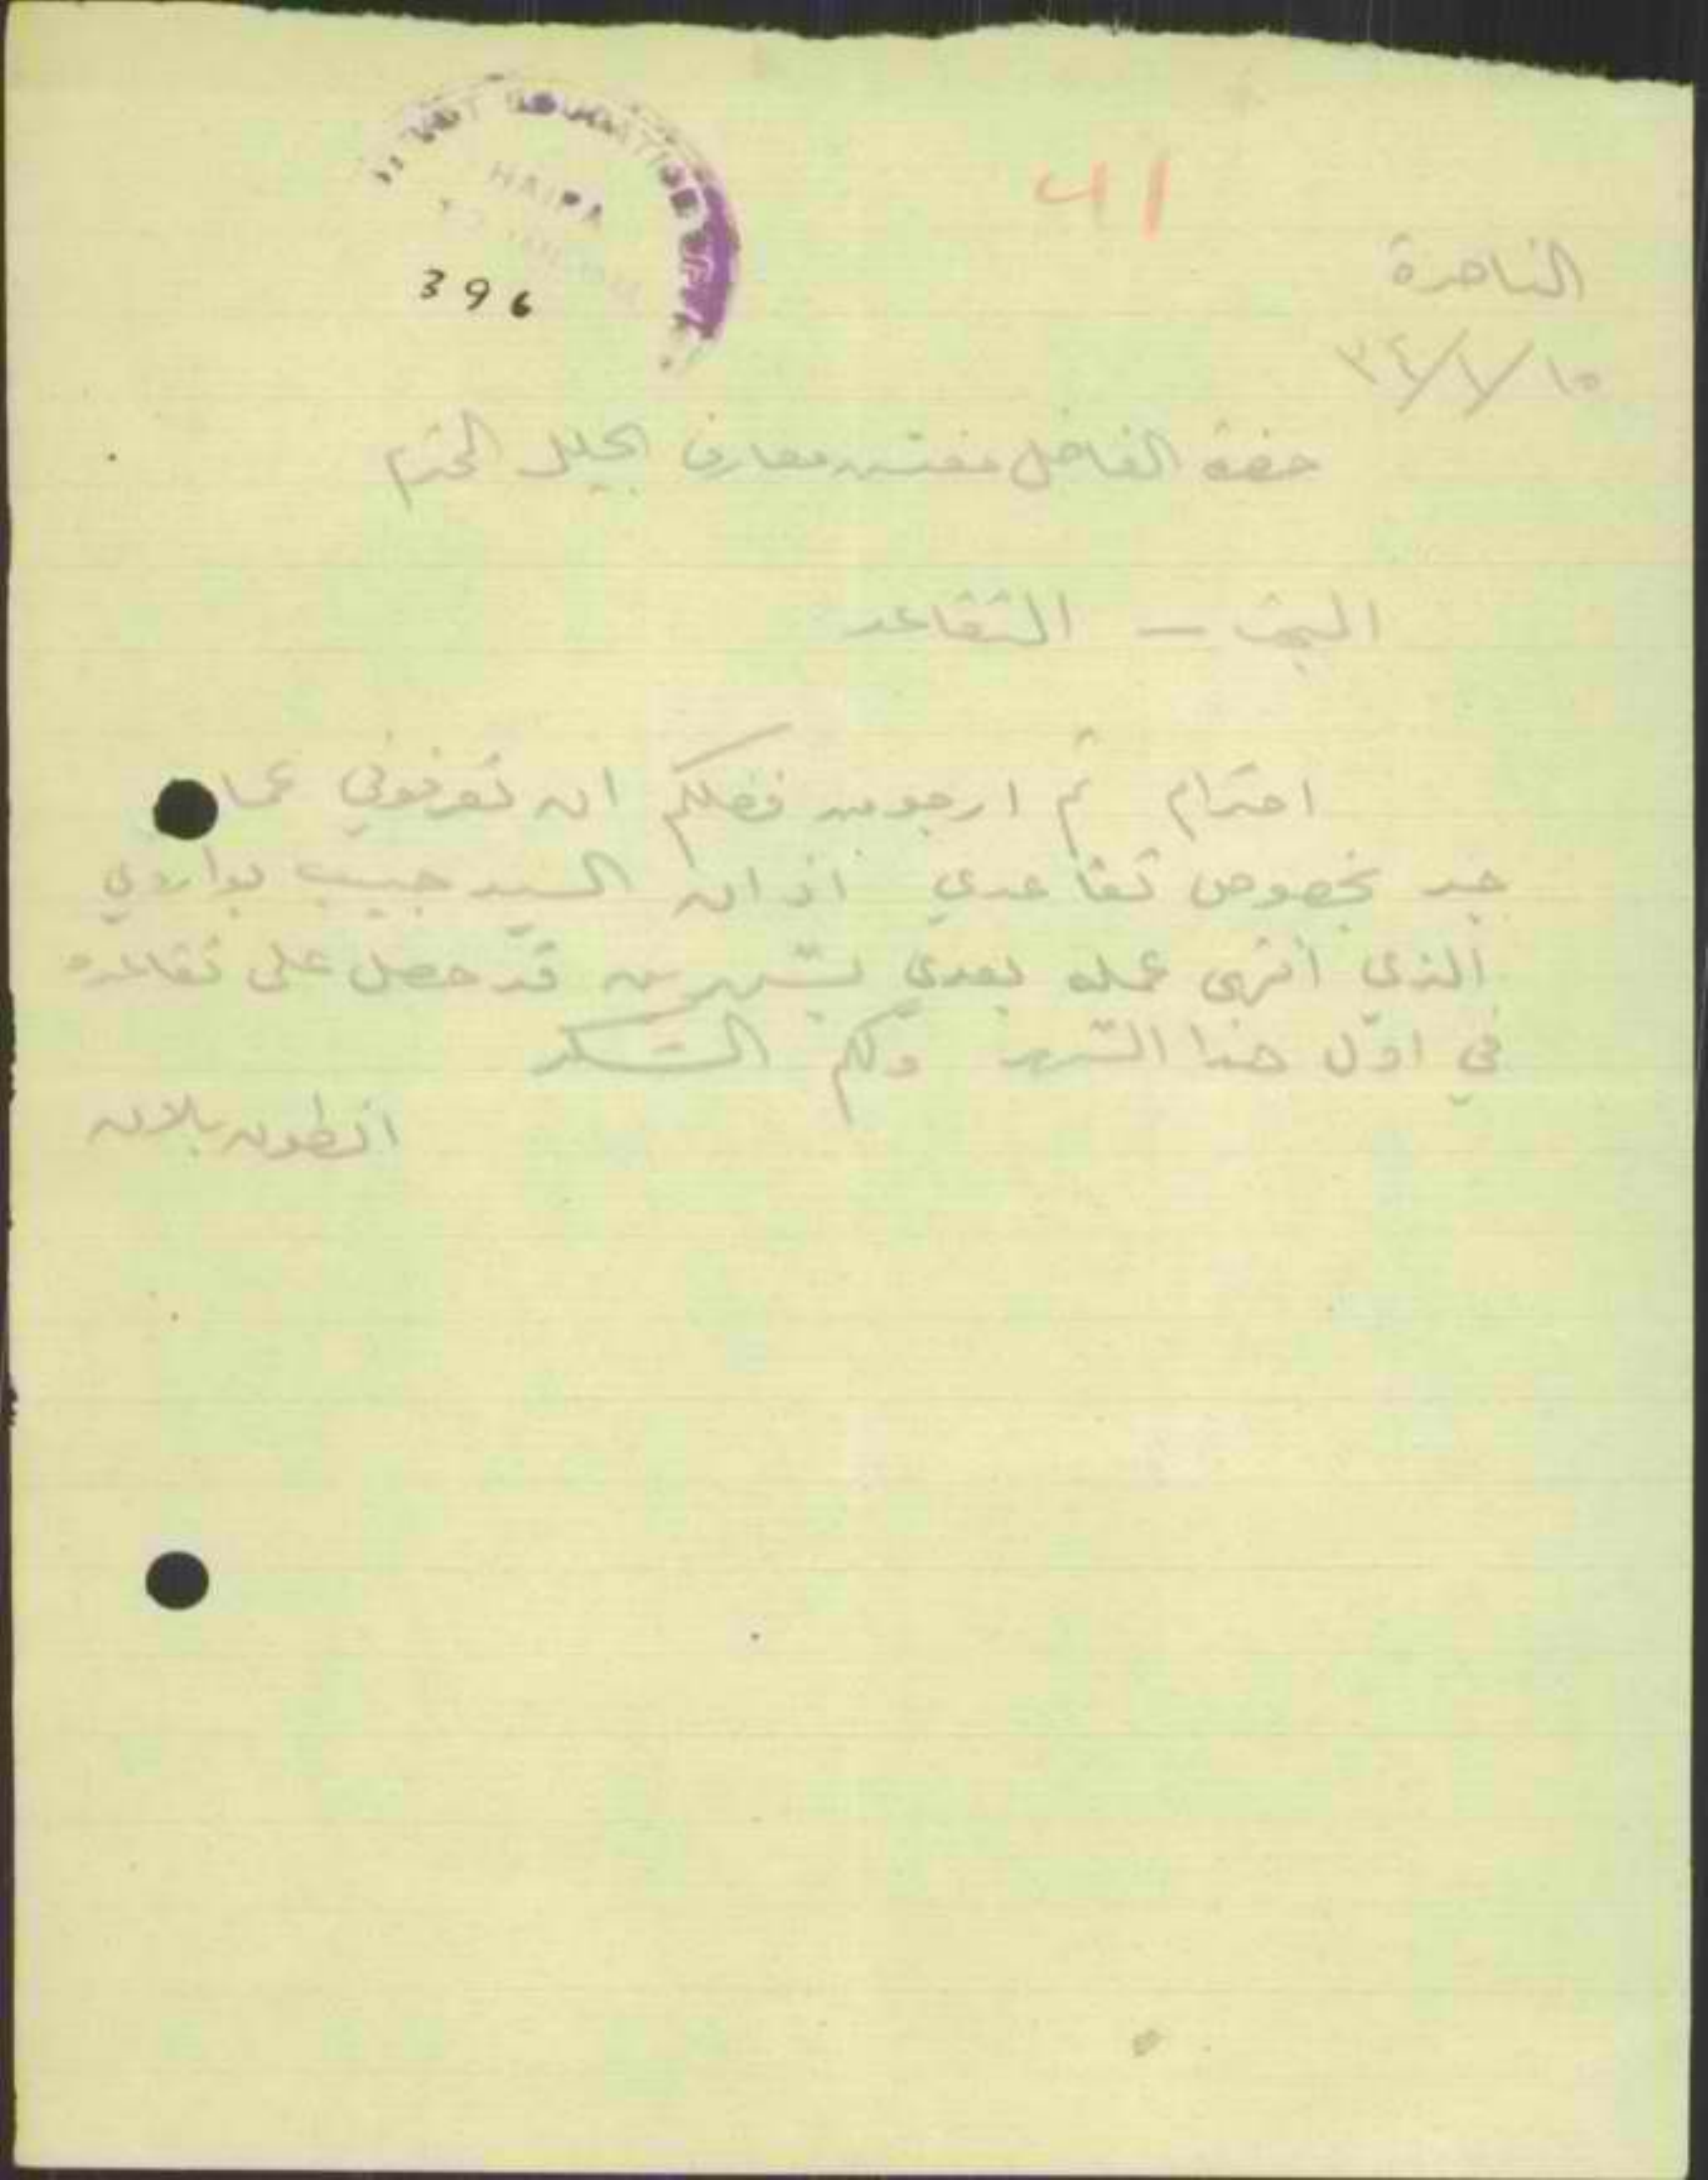 DISTRICT EDUCATION OFFICE
HAIFA
396
41
الناصرة
١٥/١/٣٤
حضرة الفاضل مفتش معارف الجليل المحترم
البحث — التقاعد
احترام ثم ارجو من فضلكم ان تعرفوني عما
جد بخصوص تقاعدي اذ ان السيد حبيب بواردي
الذي انهى عمله بعدي بشهرين قد حصل على تقاعده
في اول هذا الشهر ولكم الشكر
انطون بلان